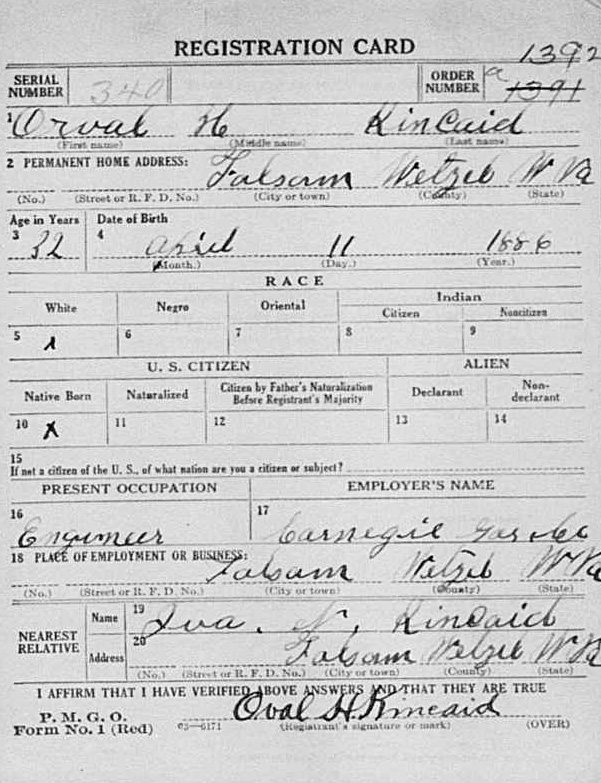 REGISTRATION CARD
1392
SERIAL NUMBER 340 ORDER NUMBER a 1391
1 Orval H Kincaid
(First name) (Middle name) (Last name)
2 PERMANENT HOME ADDRESS: Folsom Wetzel W Va
(No.) (Street or R. F. D. No.) (City or town) (County) (State)
Age in Years Date of Birth
3 32 4 April 11 1886
(Month.) (Day.) (Year.)
RACE
White Negro Oriental Indian
Citizen Noncitizen
5 x 6 7 8 9
U. S. CITIZEN ALIEN
Native Born Naturalized Citizen by Father's Naturalization Before Registrant's Majority Declarant Non-declarant
10 x 11 12 13 14
15
If not a citizen of the U. S., of what nation are you a citizen or subject?
PRESENT OCCUPATION EMPLOYER'S NAME
16 Engineer 17 Carnegie Gas Co
18 PLACE OF EMPLOYMENT OR BUSINESS:
Folsom Wetzel W Va
(No.) (Street or R. F. D. No.) (City or town) (County) (State)
NEAREST RELATIVE Name 19 Iva. N. Kincaid
Address 20 Folsom Wetzel W Va
(No.) (Street or R. F. D. No.) (City or town) (County) (State)
I AFFIRM THAT I HAVE VERIFIED ABOVE ANSWERS AND THAT THEY ARE TRUE
P. M. G. O.
Form No. 1 (Red) 03—6171 Oval H Kincaid
(Registrant's signature or mark) (OVER)